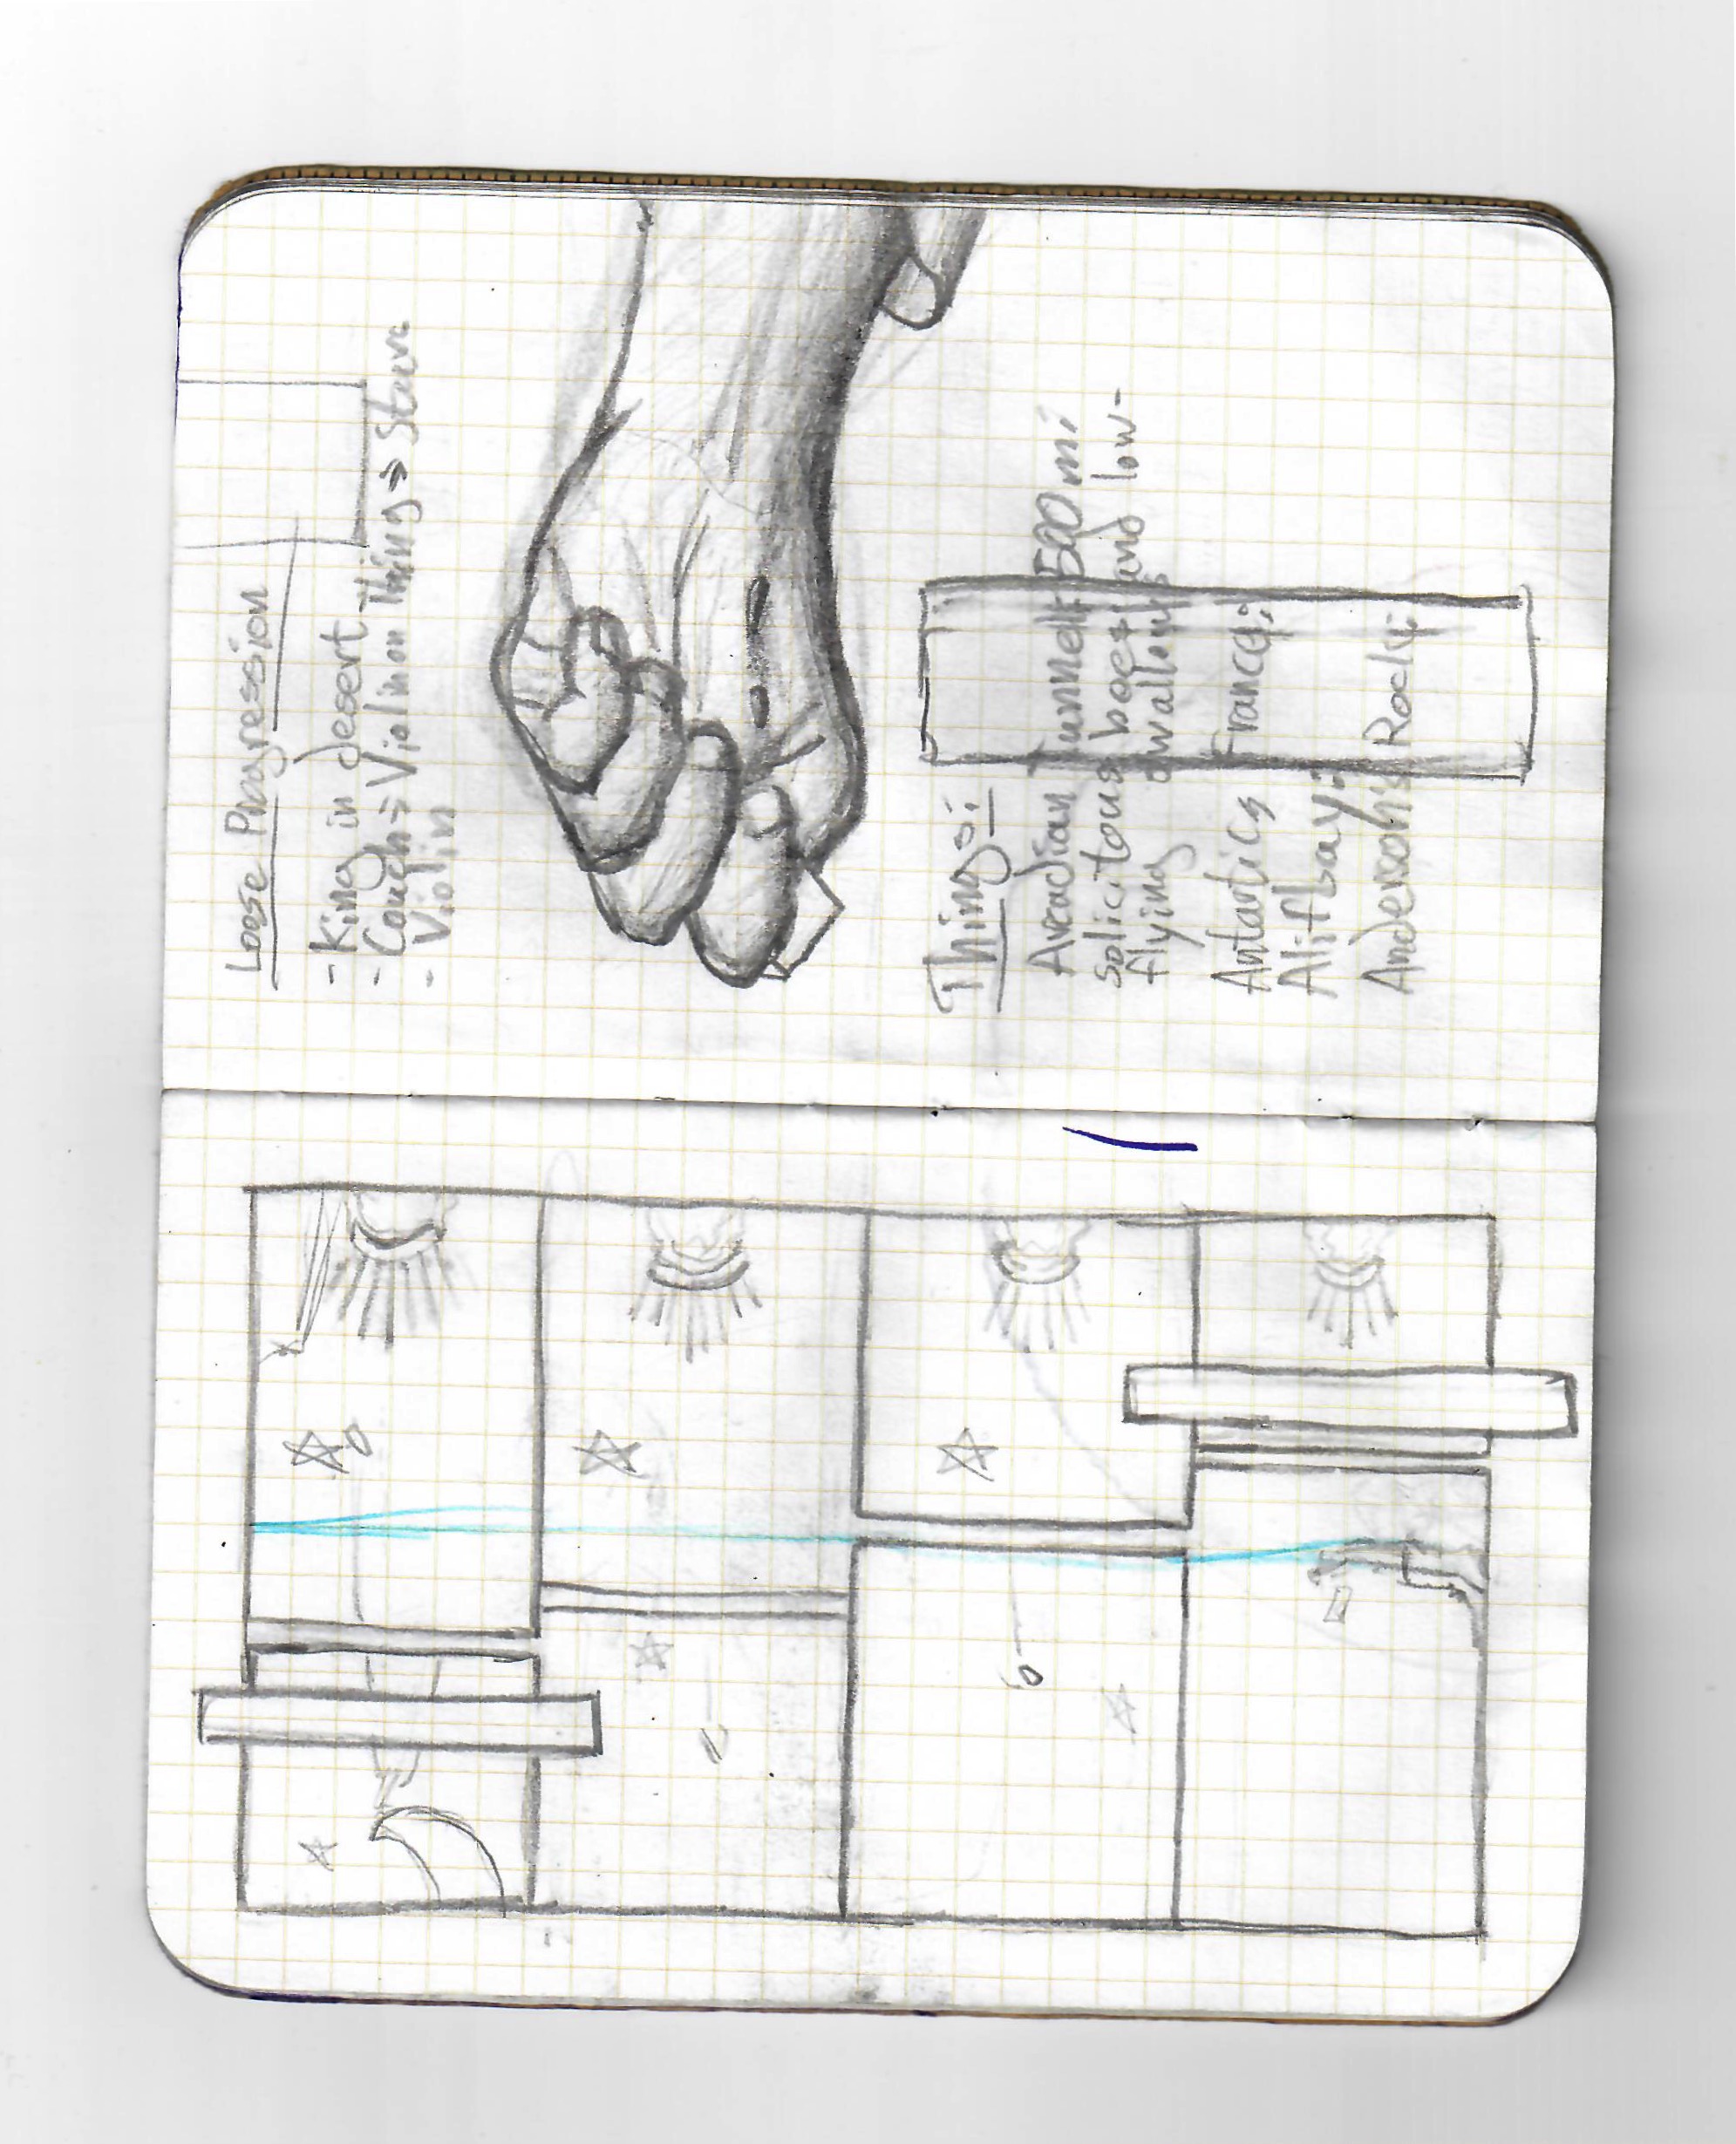 Loose Progression
- King in desert...
- Couch → Violin on Thing → Stars
- Violin
Things:
Arcadian Tunnels 500 mi
solicitous bees and low-
flying swallows
Antartics France:
Alifbay:
Anderson's Rock: